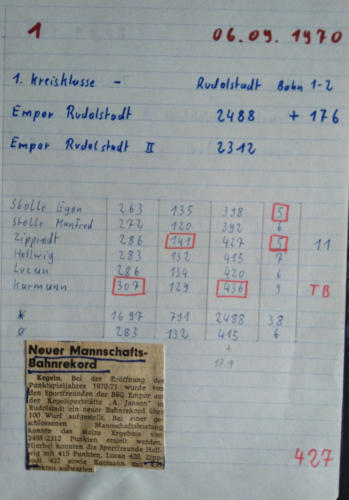 1 06.09.1970
1. Kreisklasse - Rudolstadt Bahn 1-2
Empor Rudolstadt 2488 + 176
Empor Rudolstadt II 2312
Stolle Egon 263 135 398 5
Stolle Manfred 272 120 392 6
Zipprodt 286 141 427 5 11
Hellwig 283 132 415 7
Lucan 286 134 420 6
Karmann 307 129 436 9 TB
* 1697 791 2488 38
Ø 283 132 415 6
+
171
Neuer Mannschafts-
Bahnrekord
Kegeln. Bei der Eröffnung des
Punktspieljahres 1970/71 wurde von
den Sportfreunden der BSG Empor auf
der Kegelsportstätte „A. Jansen" in
Rudolstadt ein neuer Bahnrekord über
100 Wurf aufgestellt. Bei einer ge-
schlossenen Mannschaftsleistung
konnte das stolze Ergebnis von
2488:2312 Punkten erzielt werden.
Hierbei konnten die Sportfreunde Hell-
wig mit 415 Punkten, Lucan 420, Zipp-
rodt 427 sowie Karmann mit 436
Punkten aufwarten.
427